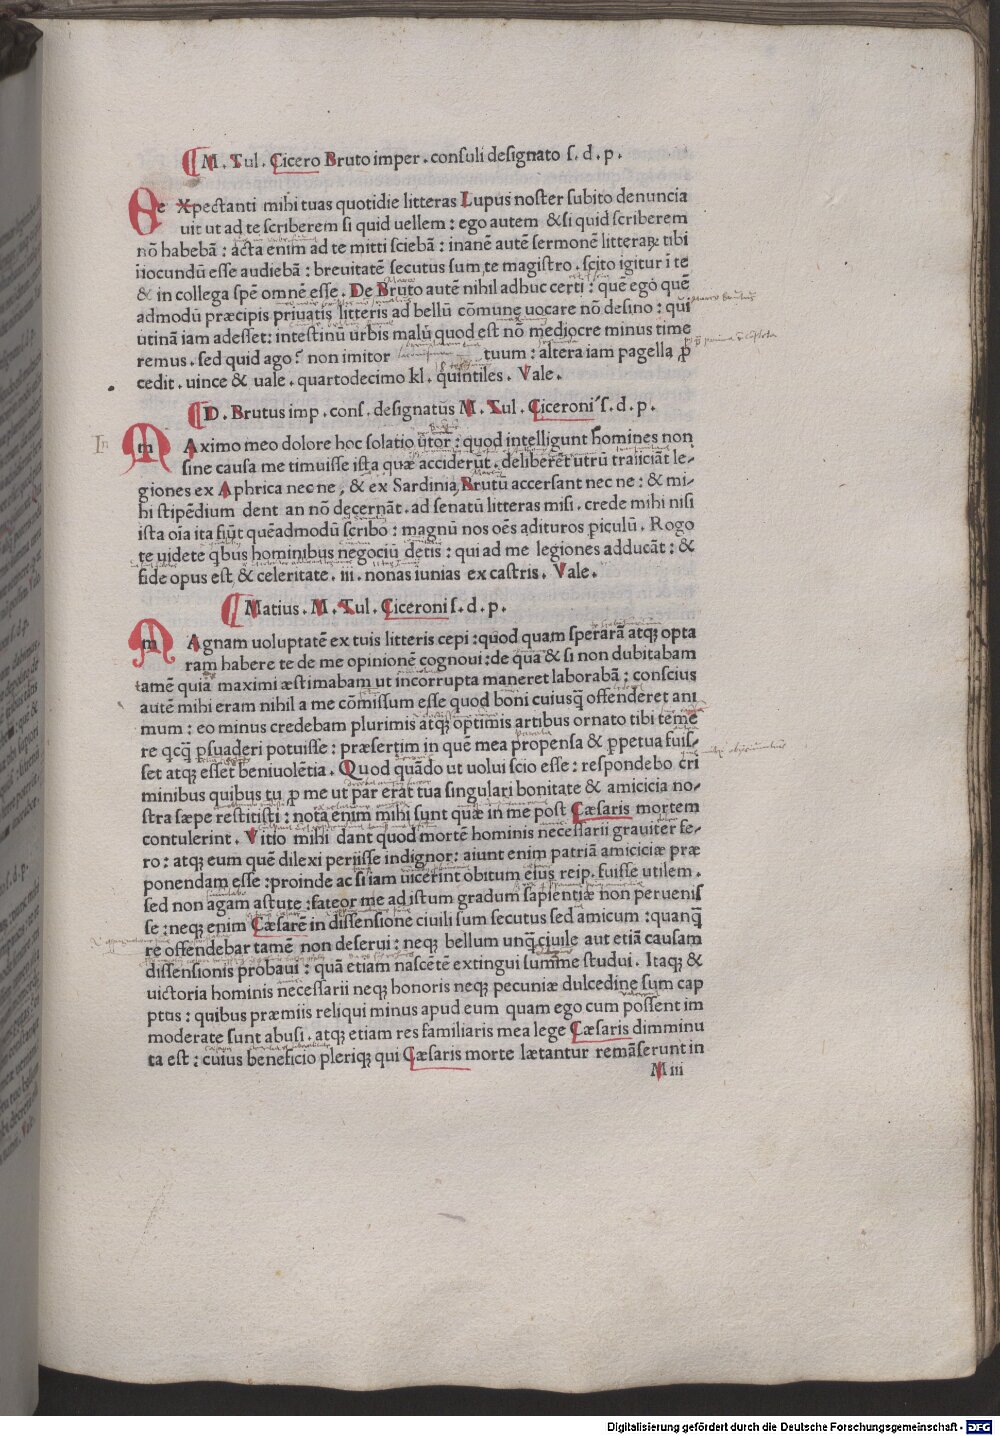 M. Tul. Cicero Bruto imper. consuli designato s. d. p.
Ee Xpectanti mihi tuas quotidie litteras Lupus noster subito denuncia
uit ut ad te scriberem si quid uellem: ego autem & si quid scriberem
nō habebā: acta enim ad te mitti sciebā: inanē autē sermonē litteraꝝ tibi
iiocundū esse audiebā: breuitatē secutus sum te magistro. scito igitur ī te
& in collega spē omnē esse. De Bruto autē nihil adhuc certi: quē ego quē
admodū præcipis priuatis litteris ad bellū cōmune uocare nō desino: qui
utinā iam adesset: intestinū urbis malū quod est nō mediocre minus time
remus. sed quid ago? non imitor tuum: altera iam pagella p̄
cedit. uince & uale. quartodecimo kl. quintiles. Vale.
D. Brutus imp. cons. designatus M. Tul. Ciceroni s. d. p.
In
m Aximo meo dolore hoc solatio utor: quod intelligunt homines non
sine causa me timuisse ista quæ acciderūt. deliberēt utrū traiiciāt le-
giones ex Aphrica nec ne, & ex Sardinia, Brutū accersant nec ne: & mi-
hi stipēdium dent an nō decernāt. ad senatū litteras misi. crede mihi nisi
ista oīa ita fiūt quēadmodū scribo: magnū nos oēs adituros piculū. Rogo
te uidete qbus hominibus negociū detis: qui ad me legiones adducāt: &
fide opus est & celeritate. iii. nonas iunias ex castris. Vale.
Matius. M. Tul. Ciceroni s. d. p.
m Agnam uoluptatē ex tuis litteris cepi: quod quam sperarā atqꝫ opta
ram habere te de me opinionē cognoui: de qua & si non dubitabam
tamē quia maximi æstimabam ut incorrupta maneret laborabā: conscius
autē mihi eram nihil a me cōmissum esse quod boni cuiusq̄ offenderet ani
mum: eo minus credebam plurimis atqꝫ optimis artibus ornato tibi teme
re qcq̄ p̱suaderi potuisse: præsertim in quē mea propensa & p̱petua fuis-
set atqꝫ esset beniuolētia. Quod quādo ut uolui scio esse: respondebo cri
minibus quibus tu p̱ me ut par erat tua singulari bonitate & amicicia no-
stra sæpe restitisti: nota enim mihi sunt quæ in me post Cæsaris mortem
contulerint. Vitio mihi dant quod mortē hominis necessarii grauiter fe-
ro: atqꝫ eum quē dilexi periisse indignor: aiunt enim patriā amiciciæ præ
ponendam esse: proinde ac si iam uicerint obitum eius reip. fuisse utilem.
sed non agam astute: fateor me ad istum gradum sapientiæ non peruenis
se: neqꝫ enim Cæsarē in dissensione ciuili sum secutus sed amicum: quanq̄
re offendebar tamē non deserui: neqꝫ bellum unq̄ ciuile aut etiā causam
dissensionis probaui: quā etiam nascētē extingui summe studui. Itaqꝫ &
uictoria hominis necessarii neqꝫ honoris neqꝫ pecuniæ dulcedine sum cap
ptus: quibus præmiis reliqui minus apud eum quam ego cum possent im
moderate sunt abusi. atqꝫ etiam res familiaris mea lege Cæsaris dimminu
ta est: cuius beneficio pleriqꝫ qui Cæsaris morte lætantur remāserunt in
M iii
Digitalisierung gefördert durch die Deutsche Forschungsgemeinschaft - DFG